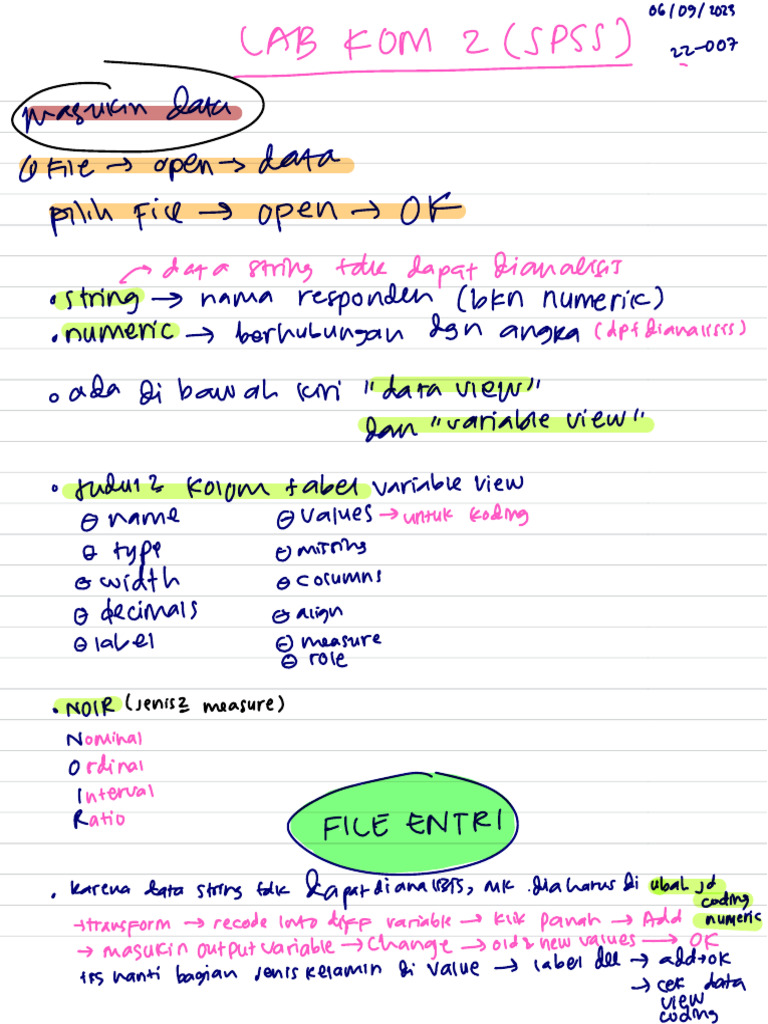 06/09/2023
LAB KOM 2 (SPSS)
22-007
masukin data
① File → open → data
pilih File → open → OK
→ data string tdk dapat dianalisis
• string → nama responden (bkn numeric)
• numeric → berhubungan dgn angka (dpt dianalisis)
○ ada di bawah kiri "data view"
dan "variable view"
• judul2 kolom tabel variable view
⊖ name
⊖ type
⊖ width
⊖ decimals
⊖ label
⊖ values → untuk koding
⊖ missing
⊖ columns
⊖ align
⊖ measure
⊖ role
• NOIR (jenis2 measure)
Nominal
Ordinal
Interval
Ratio
FILE ENTRI
• karena data string tdk dapat dianalisis, mk dia harus di ubah jd
coding
numeric
→ transform → recode into diff variable → klik panah → Add
→ masukin output variable → change → old & new values → OK
trs nanti bagian jenis kelamin di value → label dll → add → ok
→ cek data
view
coding